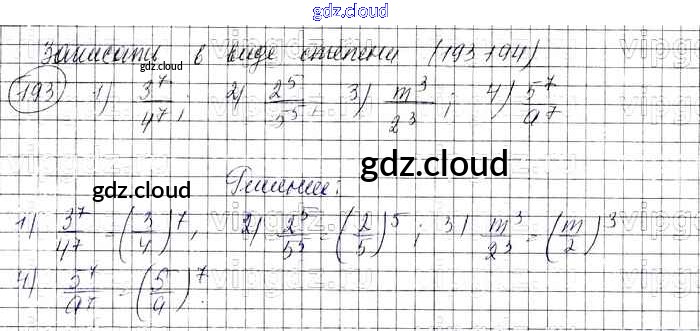 gdz.cloud
Записать в виде степени (193, 194)
gdz.cloud
193 1) 3^7/4^7, 2) 2^5/5^5, 3) m^3/2^3; 4) 5^7/a^7
gdz.cloud gdz.cloud
Решение:
1) 3^7/4^7 = (3/4)^7, 2) 2^5/5^5 = (2/5)^5; 3) m^3/2^3 = (m/2)^3
4) 5^7/a^7 = (5/a)^7.